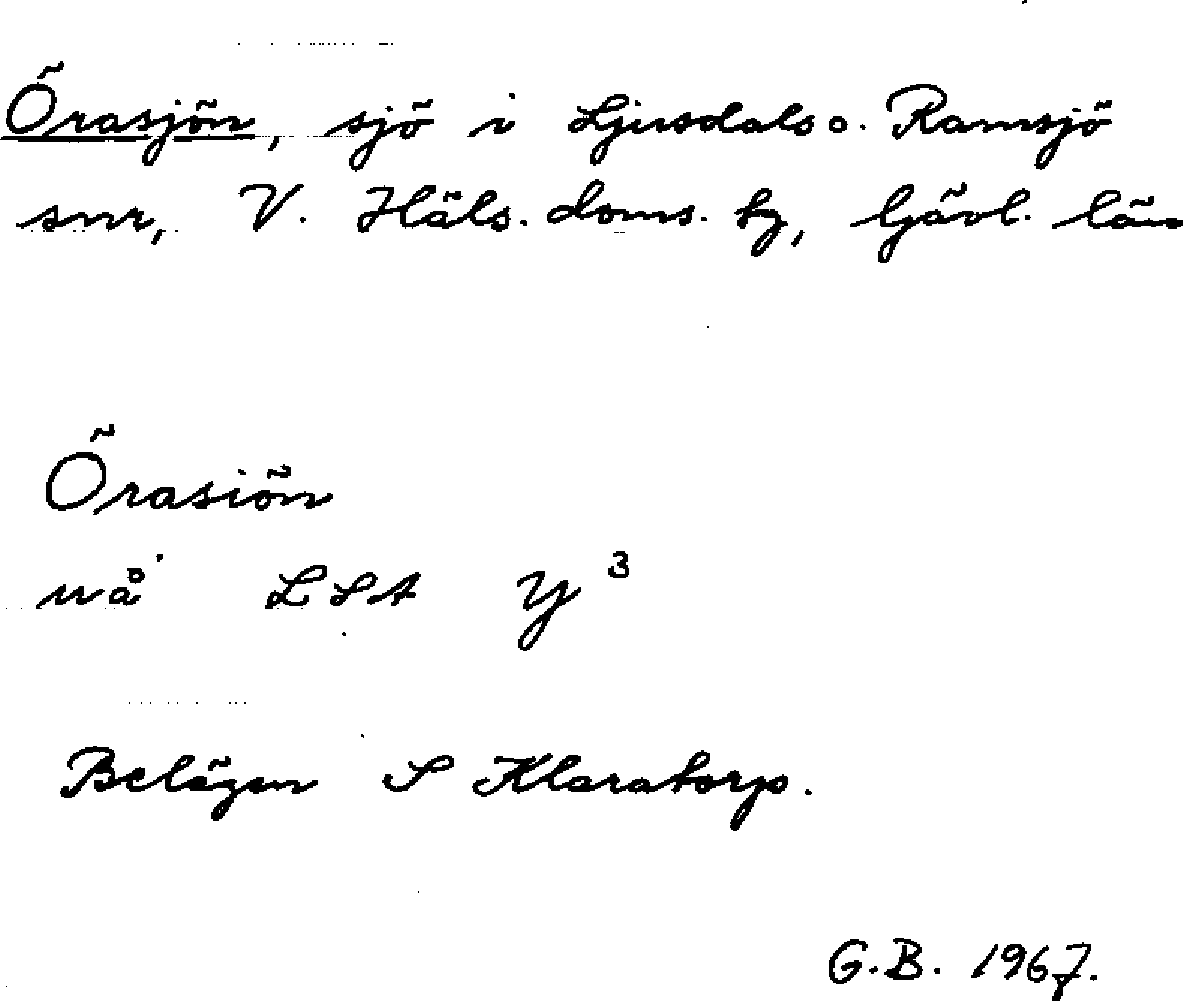 Örasjön, sjö i Ljusdals o. Ramsjö
snr, V. Häls. doms. tg, Gävl. län
Örasiön
nå LSA Y³
Belägen S Klaratorp.
G.B. 1967.